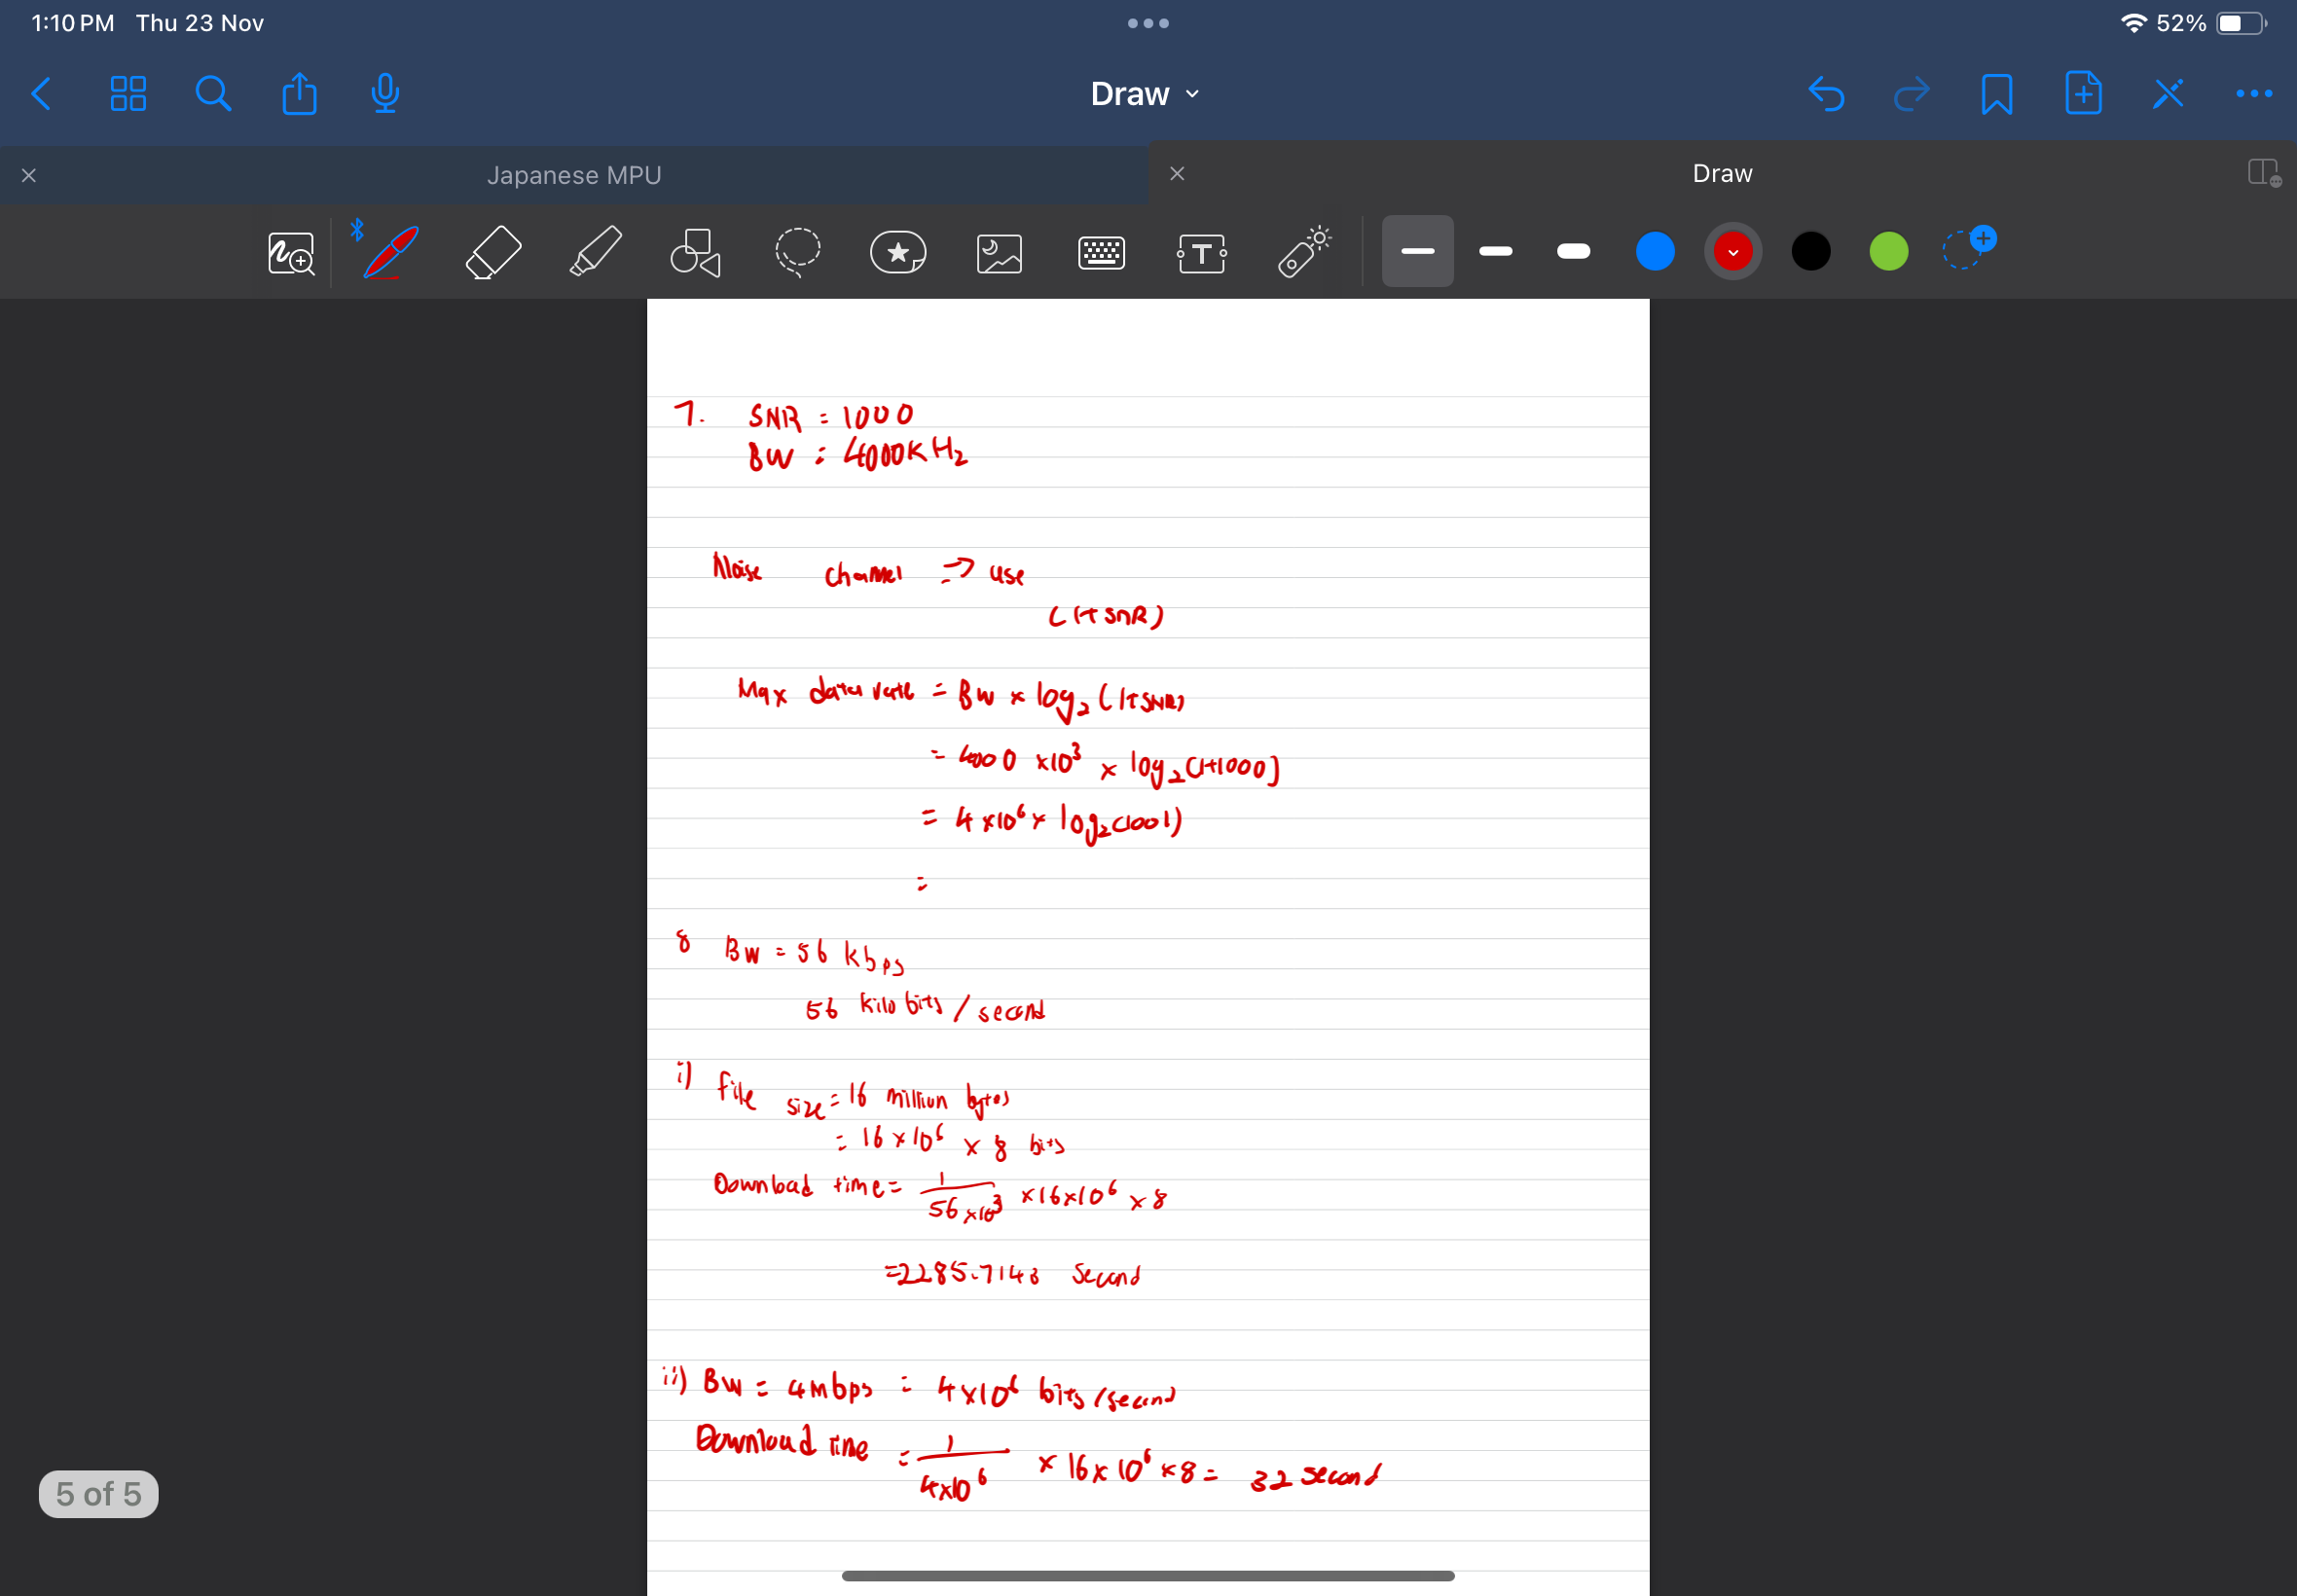 1:10 PM Thu 23 Nov
52%
Draw
Japanese MPU
Draw
T
7. SNR = 1000
BW = 4000KHz
Noise channel => use
(1+SNR)
Max data rate = BW × log₂(1+SNR)
= 4000 ×10³ × log₂(1+1000)
= 4×10⁶ × log₂(1001)
=
8 BW = 56 kbps
56 kilobits / second
i) file size = 16 million bytes
= 16×10⁶ × 8 bits
Download time = 1/56×10³ ×16×10⁶ × 8
= 2285.7143 second
ii) BW = 4mbps = 4×10⁶ bits/second
Download time = 1/4×10⁶ × 16×10⁶ ×8 = 32 second
5 of 5